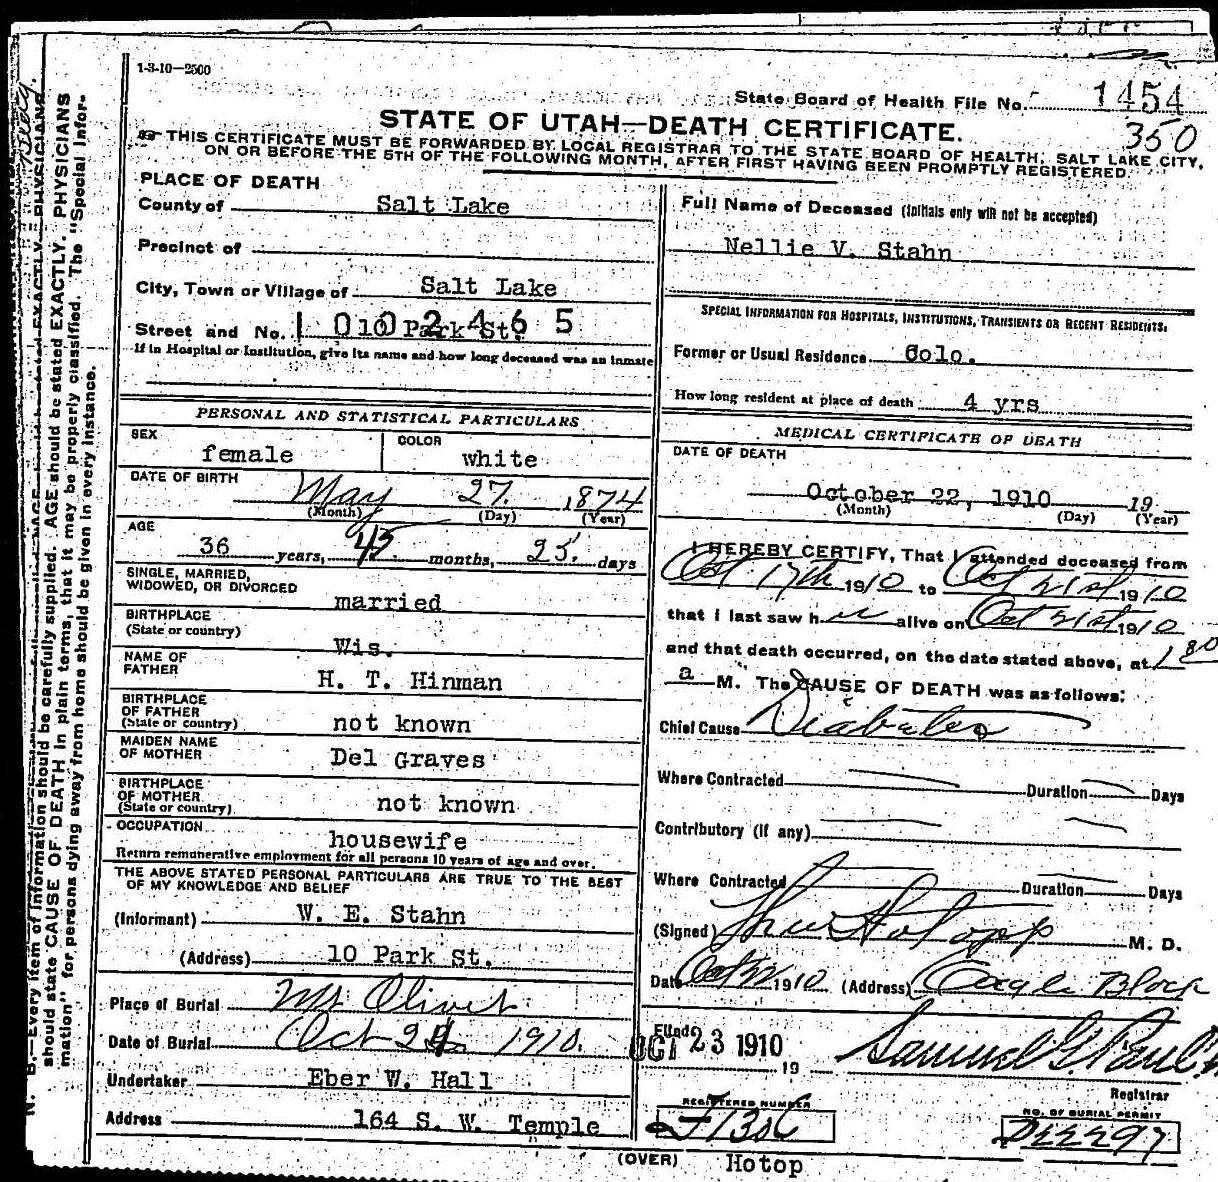 1-3-10—2500
State Board of Health File No. 1454
350
STATE OF UTAH—DEATH CERTIFICATE.
THIS CERTIFICATE MUST BE FORWARDED BY LOCAL REGISTRAR TO THE STATE BOARD OF HEALTH, SALT LAKE CITY,
ON OR BEFORE THE 5TH OF THE FOLLOWING MONTH, AFTER FIRST HAVING BEEN PROMPTLY REGISTERED.
PLACE OF DEATH
County of Salt Lake
Precinct of
City, Town or Village of Salt Lake
Street and No. 10 Park St.
1002465
If in Hospital or Institution, give its name and how long deceased was an inmate
PERSONAL AND STATISTICAL PARTICULARS
SEX female
COLOR white
DATE OF BIRTH
May 27. 1874
(Month) (Day) (Year)
AGE
36 years, 4 months, 25. days
SINGLE, MARRIED,
WIDOWED, OR DIVORCED married
BIRTHPLACE
(State or country) Wis.
NAME OF
FATHER H. T. Hinman
BIRTHPLACE
OF FATHER
(State or country) not known
MAIDEN NAME
OF MOTHER Del Graves
BIRTHPLACE
OF MOTHER
(State or country) not known
OCCUPATION housewife
Return remunerative employment for all persons 10 years of age and over.
THE ABOVE STATED PERSONAL PARTICULARS ARE TRUE TO THE BEST
OF MY KNOWLEDGE AND BELIEF
(Informant) W. E. Stahn
(Address) 10 Park St.
Place of Burial Mt Olivet
Date of Burial Oct 24 1910.
Undertaker Eber W. Hall
Address 164 S. W. Temple
Full Name of Deceased (Initials only will not be accepted)
Nellie V. Stahn
SPECIAL INFORMATION FOR HOSPITALS, INSTITUTIONS, TRANSIENTS OR RECENT RESIDENTS.
Former or Usual Residence Colo.
How long resident at place of death 4 yrs
MEDICAL CERTIFICATE OF DEATH
DATE OF DEATH
October 22, 1910 19
(Month) (Day) (Year)
I HEREBY CERTIFY, That I attended deceased from
Oct 17th 1910 to Oct 21st 1910
that I last saw her alive on Oct 21st 1910
and that death occurred, on the date stated above, at 1 30
a M. The CAUSE OF DEATH was as follows:
Chief Cause Diabetes
Where Contracted Duration Days
Contributory (if any)
Where Contracted Duration Days
(Signed) Hotopp M. D.
Date Oct 22 1910 (Address) Eagle Block
Filed OCT 23 1910
19
Samuel G. Paul
Registrar
REGISTERED NUMBER
F1306
NO. OF BURIAL PERMIT
D22297
(OVER) Hotop
N. B.—Every item of information should be carefully supplied. AGE should be stated EXACTLY. PHYSICIANS
should state CAUSE OF DEATH in plain terms, that it may be properly classified. The "Special Infor-
mation," for persons dying away from home should be given in every instance.